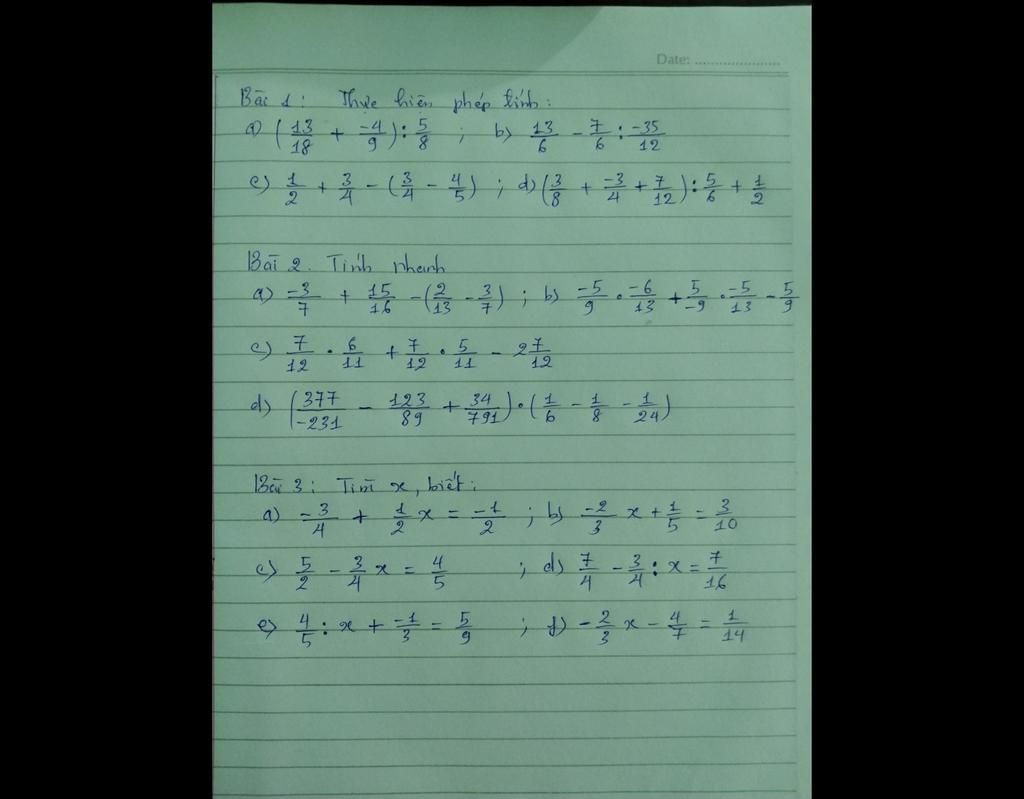 Date: ......................
Bài 1: Thực hiện phép tính:
a) (13/18 + -4/9) : 5/8 ; b) 13/6 - 7/6 : -35/12
c) 1/2 + 3/4 - (3/4 - 4/5) ; d) (3/8 + -3/4 + 7/12) : 5/6 + 1/2
Bài 2. Tính nhanh
a) -3/7 + 15/16 - (2/13 - 3/7) ; b) -5/9 . -6/13 + 5/-9 . -5/13 - 5/9
c) 7/12 . 6/11 + 7/12 . 5/11 - 2 7/12
d) (377/-231 - 123/89 + 34/791) . (1/6 - 1/8 - 1/24)
Bài 3: Tìm x, biết:
a) -3/4 + 1/2 x = -1/2 ; b) -2/3 x + 1/5 = 3/10
c) 5/2 - 3/4 x = 4/5 ; d) 7/4 - 3/4 : x = 7/16
e) 4/5 : x + -1/3 = 5/9 ; f) -2/3 x - 4/7 = 1/14